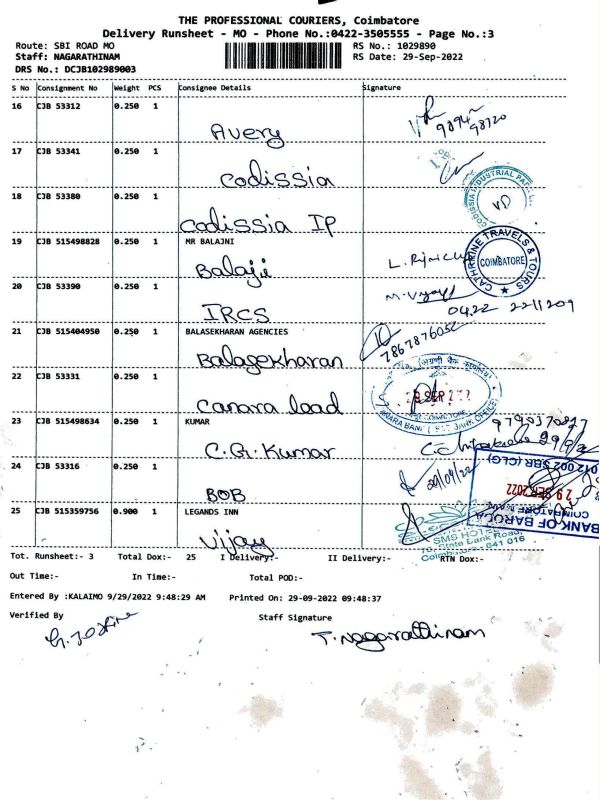 THE PROFESSIONAL COURIERS, Coimbatore
Delivery Runsheet - MO - Phone No.:0422-3505555 - Page No.:3
Route: SBI ROAD MO RS No.: 1029890
Staff: NAGARATHINAM RS Date: 29-Sep-2022
DRS No.: DCJB102989003
S No Consignment No Weight PCS Consignee Details Signature
16 CJB 53312 0.250 1
Avery
17 CJB 53341 0.250 1
Codissia
18 CJB 53380 0.250 1
CODISSIA INDUSTRIAL
VP
Codissia IP
19 CJB 515498828 0.250 1 MR BALAJNI
Balaji
CATHRINE TRAVELS & TOURS
COIMBATORE
20 CJB 53390 0.250 1
IRCS
0422 2211209
21 CJB 515404950 0.250 1 BALASEKHARAN AGENCIES
Balasekharan
22 CJB 53331 0.250 1
Canara load
23 CJB 515498634 0.250 1 KUMAR
C.G. Kumar
24 CJB 53316 0.250 1
BOB
29/09/22
29 SEP 2022
BANK OF BARODA
25 CJB 515359756 0.900 1 LEGANDS INN
Vijay
SMS HOTEL
State Bank Road,
Coimbatore - 641 018
Tot. Runsheet:- 3 Total Dox:- 25 I Delivery:- II Delivery:- RTN Dox:-
Out Time:- In Time:- Total POD:-
Entered By :KALAIMO 9/29/2022 9:48:29 AM Printed On: 29-09-2022 09:48:37
Verified By Staff Signature
T. Nagarathinam